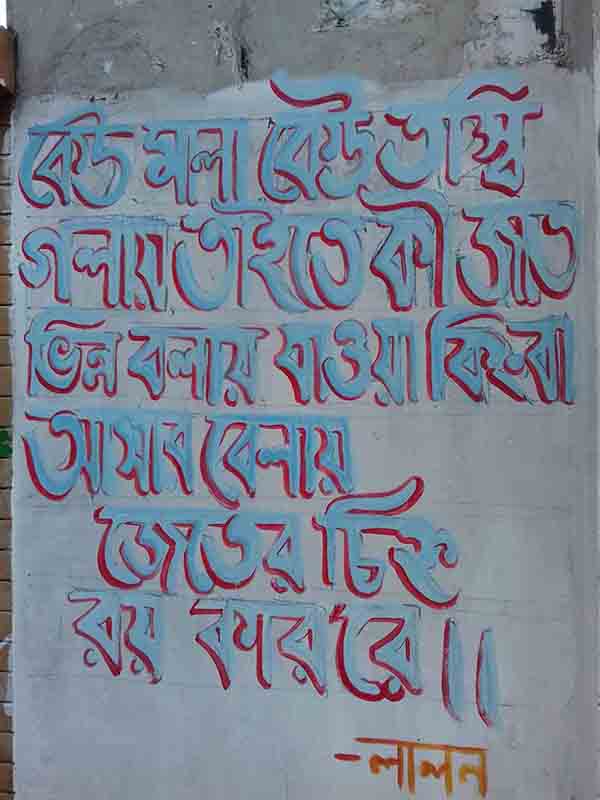 কেউ মালা কেউ তস্বি
গলায় তাইতে কী জাত
ভিন্ন বলায় যাওয়া কিংবা
আসার বেলায়
জেতের চিহ্ন
রয় কার রে ৷৷
-লালন